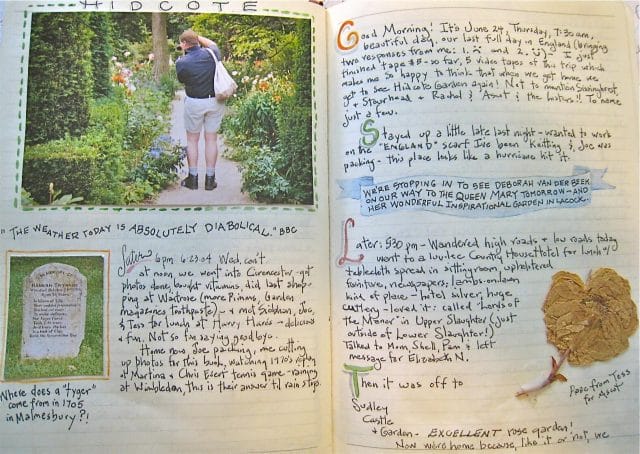 HIDCOTE
"THE WEATHER TODAY IS ABSOLUTELY DIABOLICAL." BBC
IN MEMORY OF
HANNAH TWYNNOY
Where does a "tyger"
come from in 1705
in Malmesbury?!
Later 6pm 6-23-04 Wed, con't
at noon we went into Cirencester - got
photos done, bought vitamins, did last shop-
ping at Waitrose (more Pimms, Garden
magazines, toothpaste) - & met Siobhan, Joe,
& Tess for lunch at Harry Hares - delicious
& fun. Not so fun saying goodbye.
Home now Joe packing, me cutting
up photos for this book, watching 1970's replay
of Martina & Chris Evert tennis game - raining
at Wimbledon, this is their answer to rain stop.
Good Morning! It's June 24, Thursday, 7:30 am,
beautiful day, our last full day in England (bringing
two responses from me: 1. ☹ and 2. ☺) I just
finished tape #5 - so far, 5 video tapes of this trip which
makes me so happy to think that when we get home we
get to see Hidcote Garden again! Not to mention Sissinghurst,
& Stourhead & Rachel & Ascot & the hunters!! To name
just a few.
Stayed up a little late last night - wanted to work
on the "ENGLAND" scarf I've been knitting & Joe was
packing - this place looks like a hurricane hit it.
WE'RE STOPPING IN TO SEE DEBORAH VAN DER BEEK
ON OUR WAY TO THE QUEEN MARY TOMORROW - AND
HER WONDERFUL INSPIRATIONAL GARDEN IN LACOCK.
Later: 5:30 pm - Wandered high roads & low roads today
went to a luvlee Country House Hotel for lunch w/
tablecloth spread in sitting room, upholstered
furniture, newspapers, lambs-on-lawn
kind of place - hotel silver, huge
cutlery - loved it: called "Lords of
the Manor" in Upper Slaughter (just
outside of Lower Slaughter!)
Talked to Mom, Shell, Pam & left
message for Elizabeth N.
Rose from Tess
for Ascot
Then it was off to
Sudley
Castle
& Garden - EXCELLENT rose garden!
Now were home because, like it or not, we